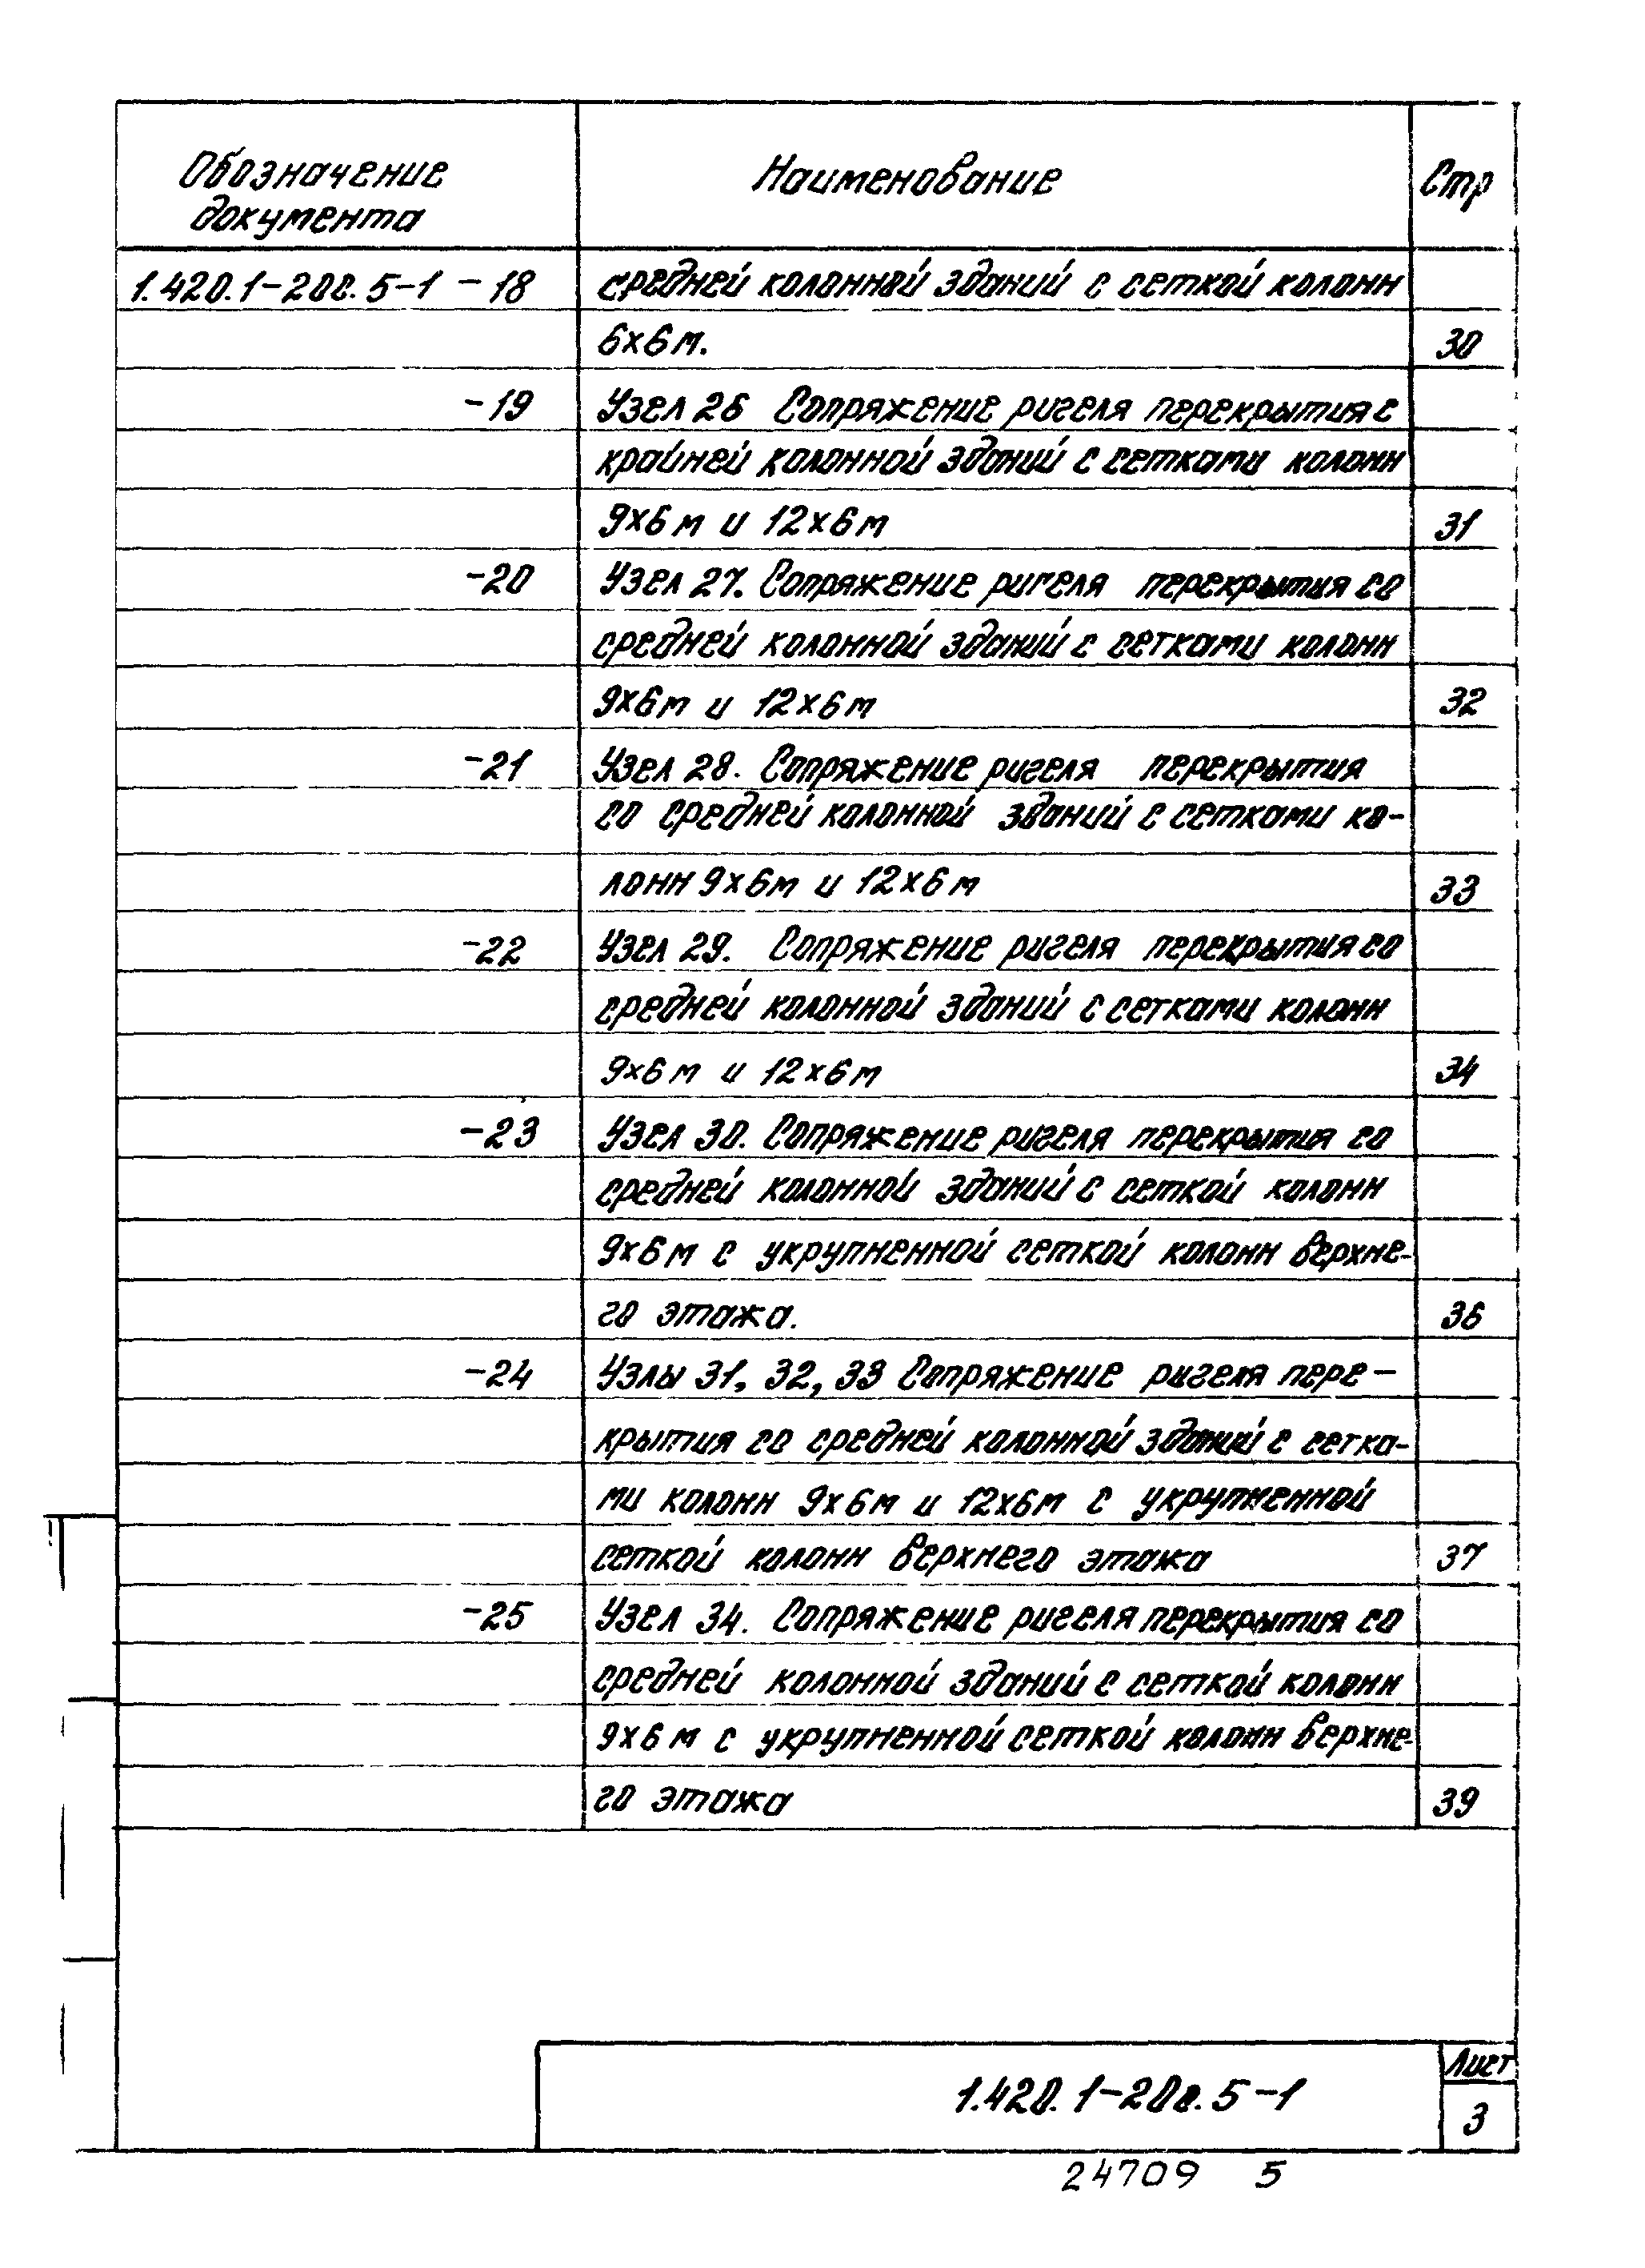 Обозначение
документа
Наименование
Стр
1.420.1-20с.5-1 -18 средней колонной зданий с сеткой колонн
6х6м. 30
-19 Узел 26 Сопряжение ригеля перекрытия с
крайней колонной зданий с сетками колонн
9х6м и 12х6м 31
-20 Узел 27. Сопряжение ригеля перекрытия со
средней колонной зданий с сетками колонн
9х6м и 12х6м 32
-21 Узел 28. Сопряжение ригеля перекрытия
со средней колонной зданий с сетками ко-
лонн 9х6м и 12х6м 33
-22 Узел 29. Сопряжение ригеля перекрытия со
средней колонной зданий с сетками колонн
9х6м и 12х6м 34
-23 Узел 30. Сопряжение ригеля перекрытия со
средней колонной зданий с сеткой колонн
9х6м с укрупненной сеткой колонн верхне-
го этажа. 36
-24 Узлы 31, 32, 33 Сопряжение ригеля пере-
крытия со средней колонной зданий с сетка-
ми колонн 9х6м и 12х6м с укрупненной
сеткой колонн верхнего этажа 37
-25 Узел 34. Сопряжение ригеля перекрытия со
средней колонной зданий с сеткой колонн
9х6м с укрупненной сеткой колонн верхне-
го этажа 39
1.420.1-20с.5-1
Лист
3
24709 5